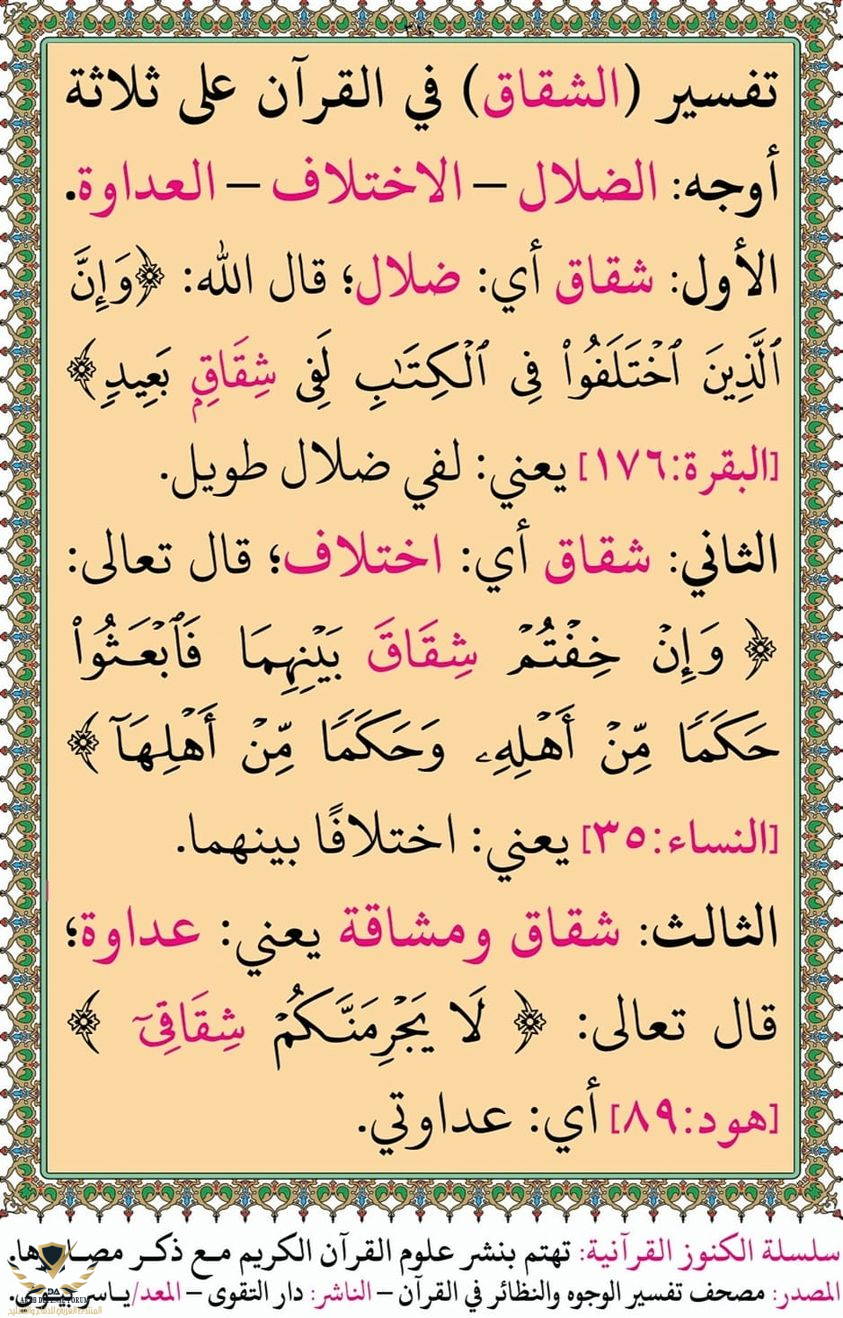 ٣١٠
تفسير (الشقاق) في القرآن على ثلاثة
أوجه: الضلال – الاختلاف – العداوة.
الأول: شقاق أي: ضلال؛ قال الله: ﴿وَإِنَّ
ٱلَّذِينَ ٱخۡتَلَفُواْ فِى ٱلۡكِتَٰبِ لَفِى شِقَاقِۭ بَعِيدٖ﴾
[البقرة:١٧٦] يعني: لفي ضلال طويل.
الثاني: شقاق أي: اختلاف؛ قال تعالى:
﴿ وَإِنۡ خِفۡتُمۡ شِقَاقَ بَيۡنِهِمَا فَٱبۡعَثُواْ
حَكَمٗا مِّنۡ أَهۡلِهِۦ وَحَكَمٗا مِّنۡ أَهۡلِهَآ ﴾
[النساء:٣٥] يعني: اختلافًا بينهما.
الثالث: شقاق ومشاقة يعني: عداوة؛
قال تعالى: ﴿ لَا يَجۡرِمَنَّكُمۡ شِقَاقِىٓ ﴾
[هود:٨٩] أي: عداوتي.
سلسلة الكنوز القرآنية: تهتم بنشر علوم القرآن الكريم مع ذكر مصادرها.
المصدر: مصحف تفسير الوجوه والنظائر في القرآن – الناشر: دار التقوى – المعد/ياسر بيومي.
DA
ARAB DEFENSE FORUM